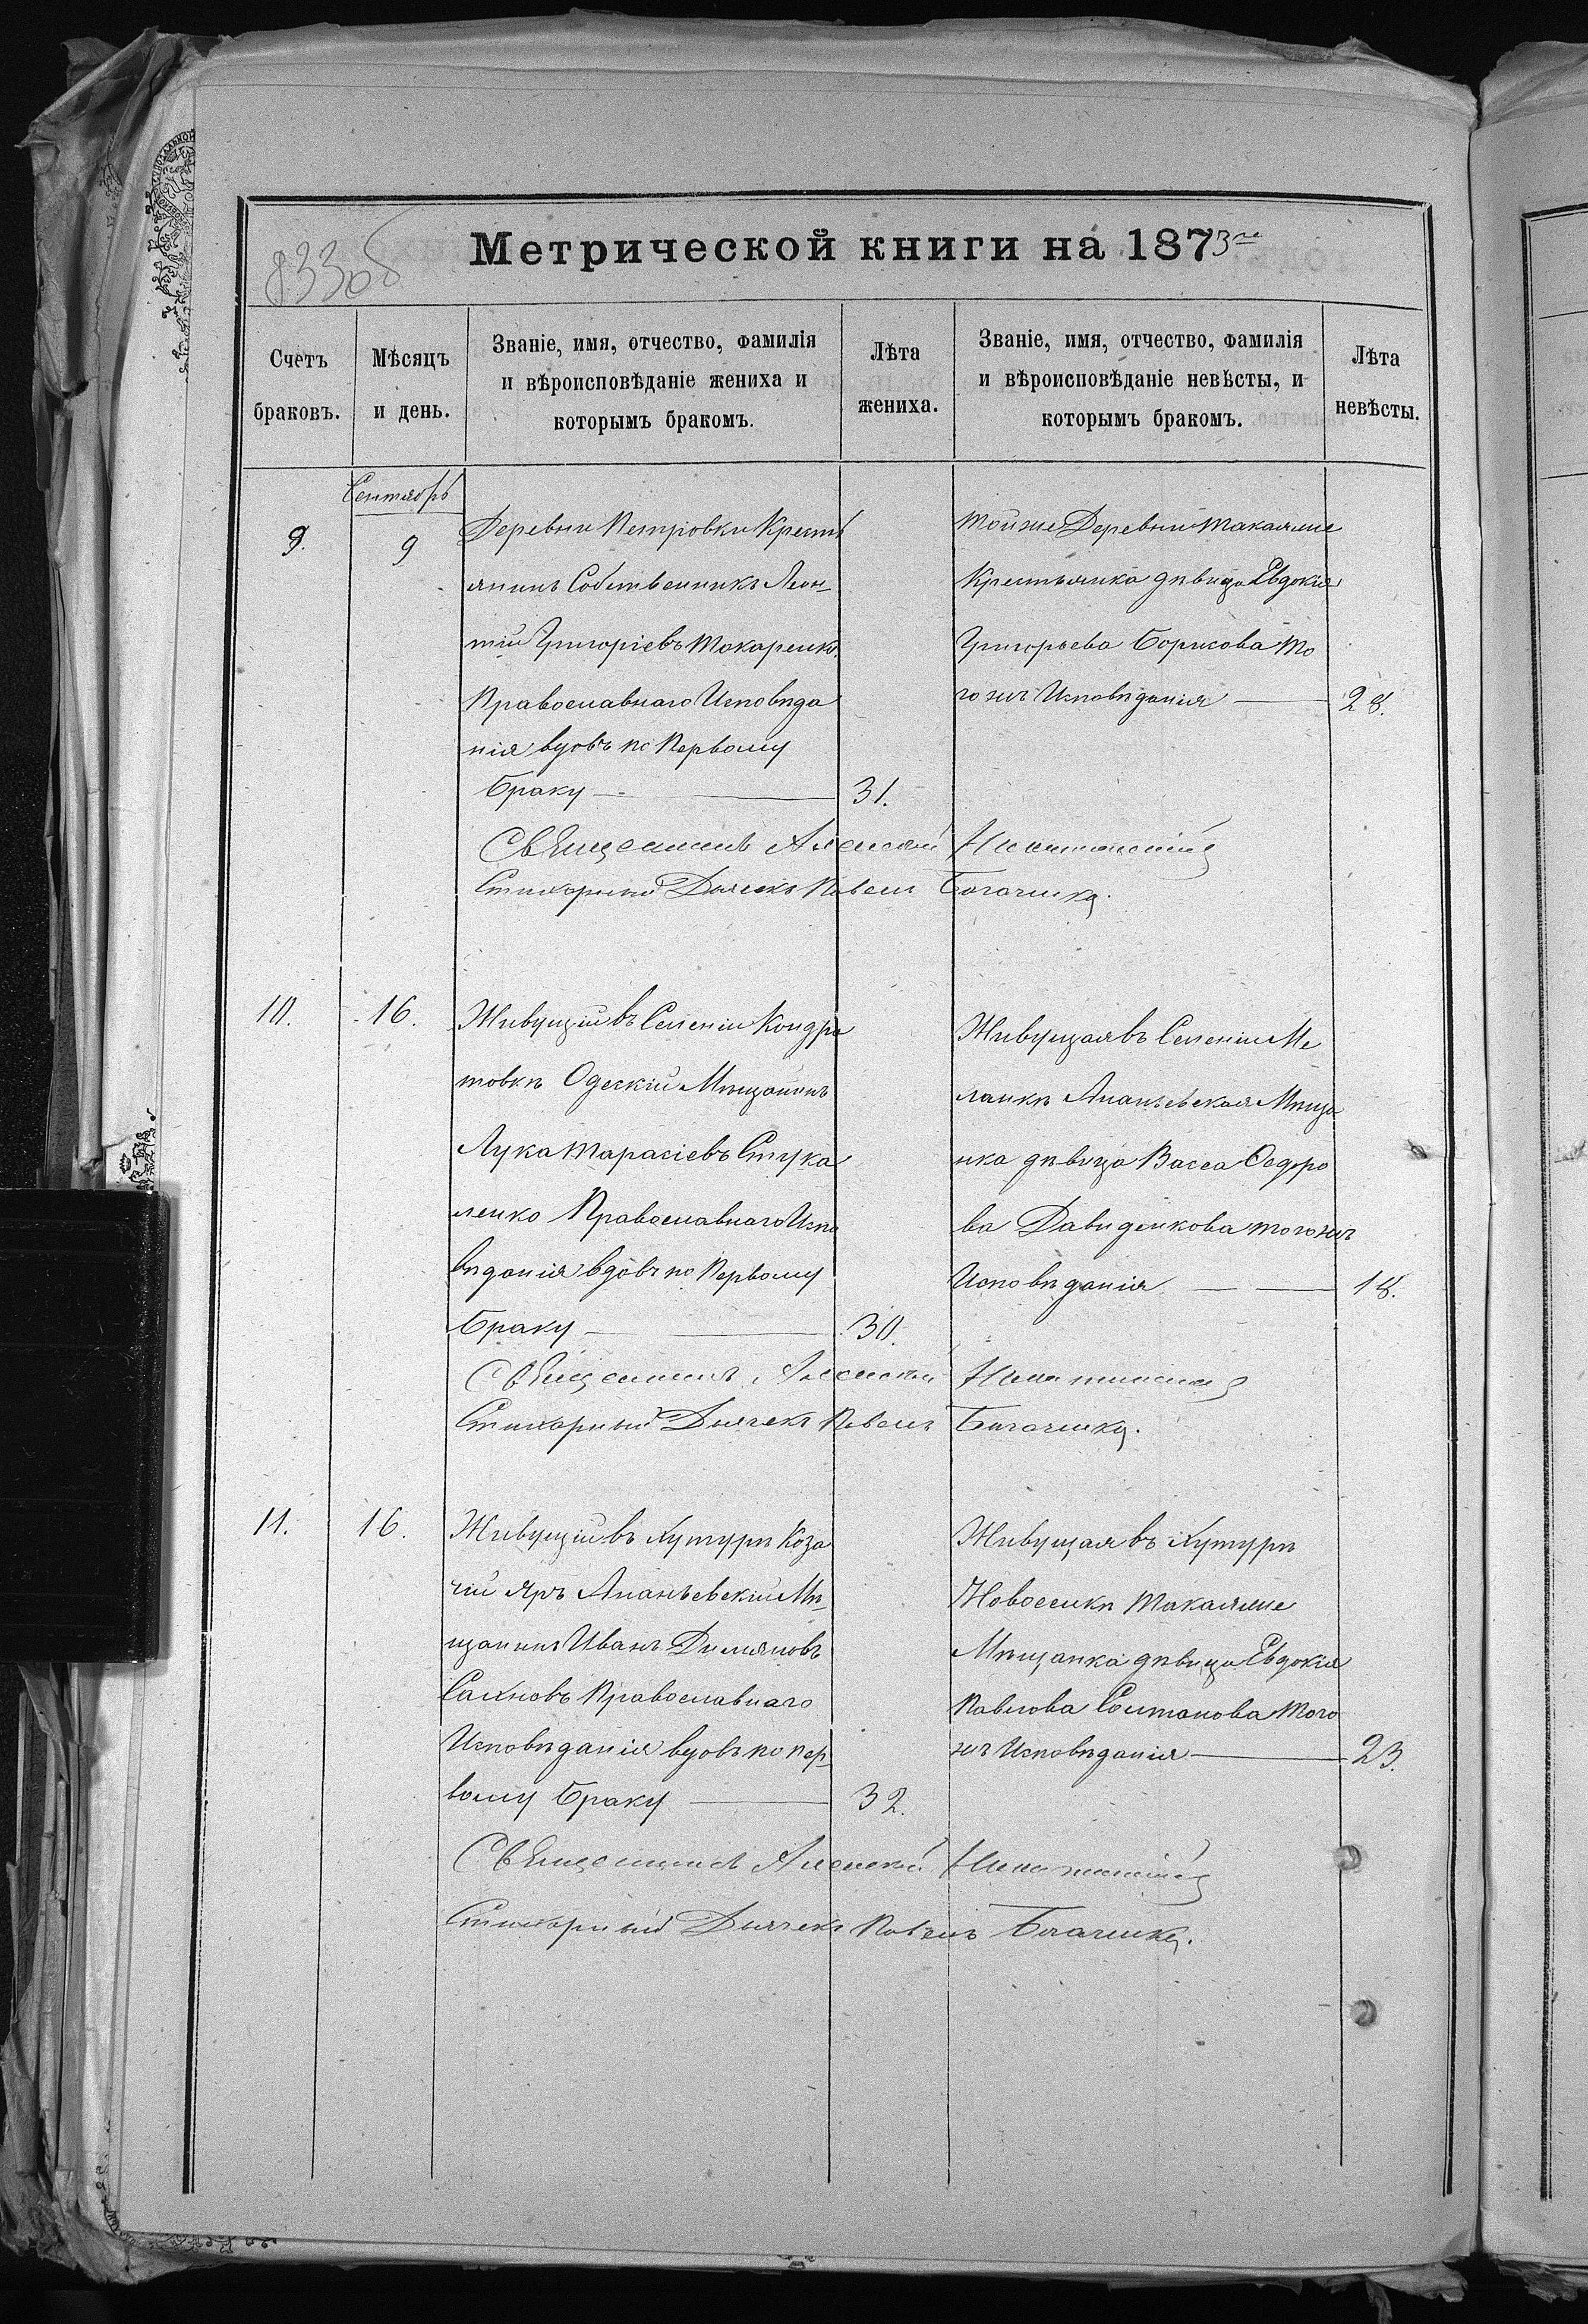 833об
Метрической книги на 1873го
Счетъ
браковъ.
Мѣсяцъ
и день.
Званіе, имя, отчество, фамилія
и вѣроисповѣданіе жениха и
которымъ бракомъ.
Лѣта
жениха.
Званіе, имя, отчество, фамилія
и вѣроисповѣданіе невѣсты, и
которымъ бракомъ.
Лѣта
невѣсты.
Сентябрь
9.
9
Деревни Петровки Кресть
янинъ Собственникъ Леон-
тій Григоріевъ Макаренко
Православнаго Исповѣда
нія вдовъ по Первому
браку
31.
Тойже Деревни Такаяже
Крестьянка дѣвица Евдокія
Григорьева Борисова То
гожъ Исповѣданія
28.
Священникъ Алексѣй
Стихарный Дьячекъ Павелъ
10.
16.
Живущій въ Селеніи Кондра
товкѣ Одескій Мѣщанинъ
Лука Тарасіевъ Стука
ленко Православнаго Испо
вѣданія вдовъ по Первому
браку
30.
Живущая въ Селеніи Ме
ланкѣ Ананьевская Мѣща
нка дѣвица Васса Ѳедоро
ва Давиденкова тогожъ
Исповѣданія
18.
Священникъ Алексѣй
Стихарный Дьячекъ Павелъ
11.
16.
Живущій въ Хуторѣ Коза
чій Яръ Ананьевскій Мѣ-
щанинъ Иванъ Демяновъ
Сахновъ Православнаго
Исповѣданія вдовъ по пер
вому браку
32.
Живущая въ Хуторѣ
Новоселкѣ Такаяже
Мѣщанка дѣвица Евдокія
Павлова Солтанова Того
жъ Исповѣданія
23.
Священникъ Алексѣй
Стихарный Дьячекъ Павелъ